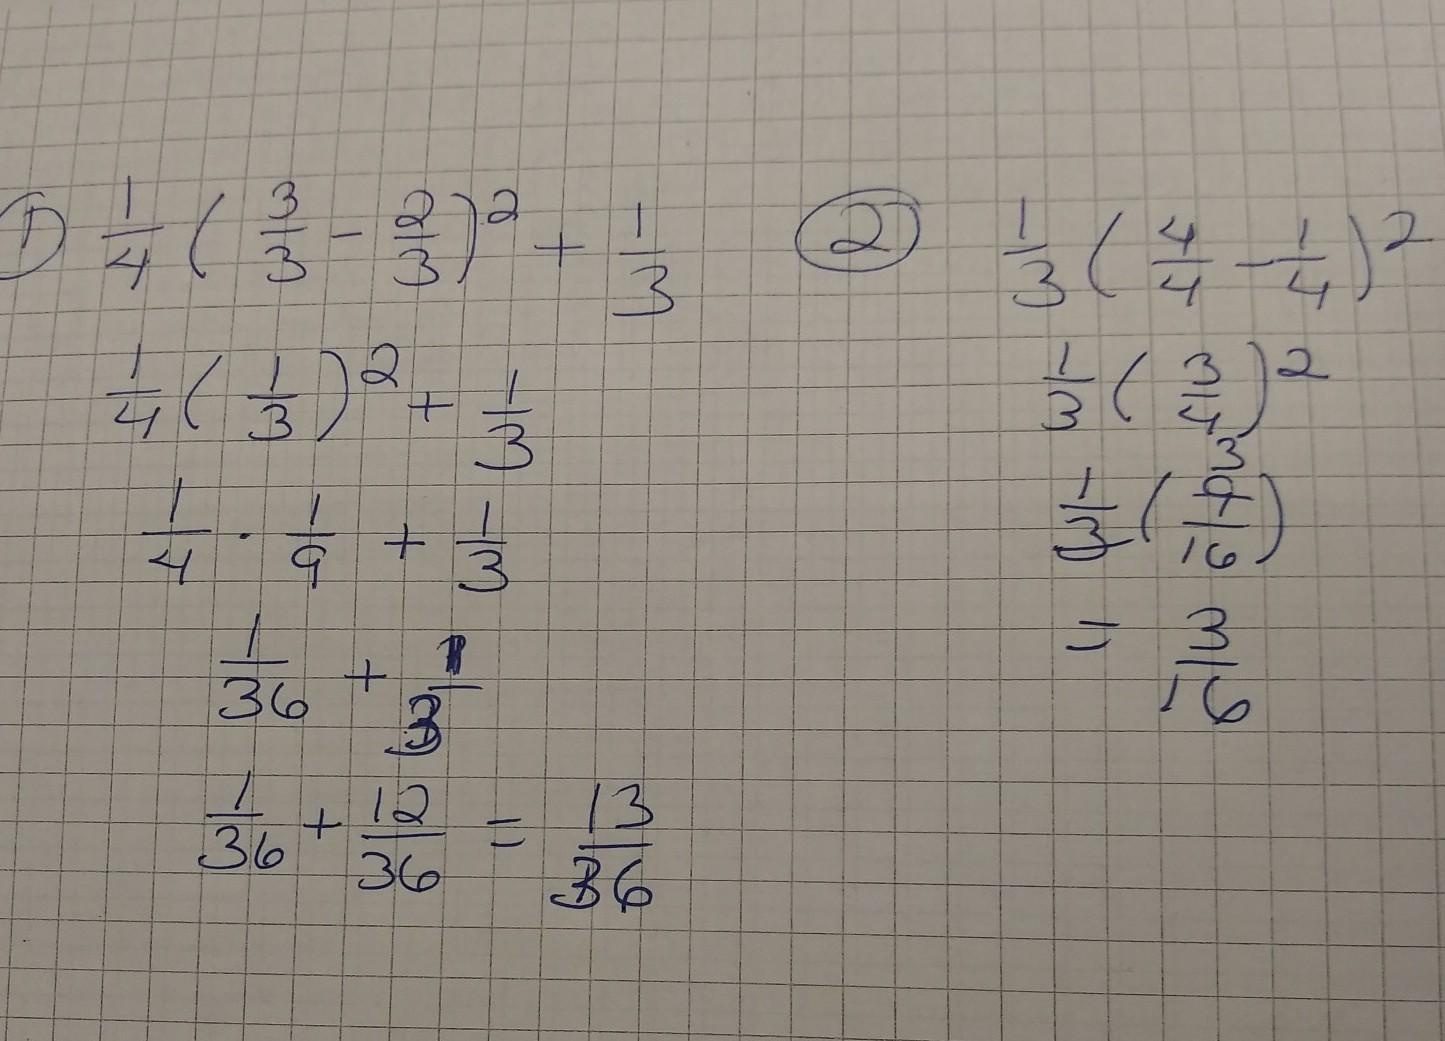 ① 1/4 ( 3/3 - 2/3 )² + 1/3
1/4 ( 1/3 )² + 1/3
1/4 · 1/9 + 1/3
1/36 + 1/3
1/36 + 12/36 = 13/36
② 1/3 ( 4/4 - 1/4 )²
1/3 ( 3/4 )²
3
1/3 ( 9/16 )
= 3/16